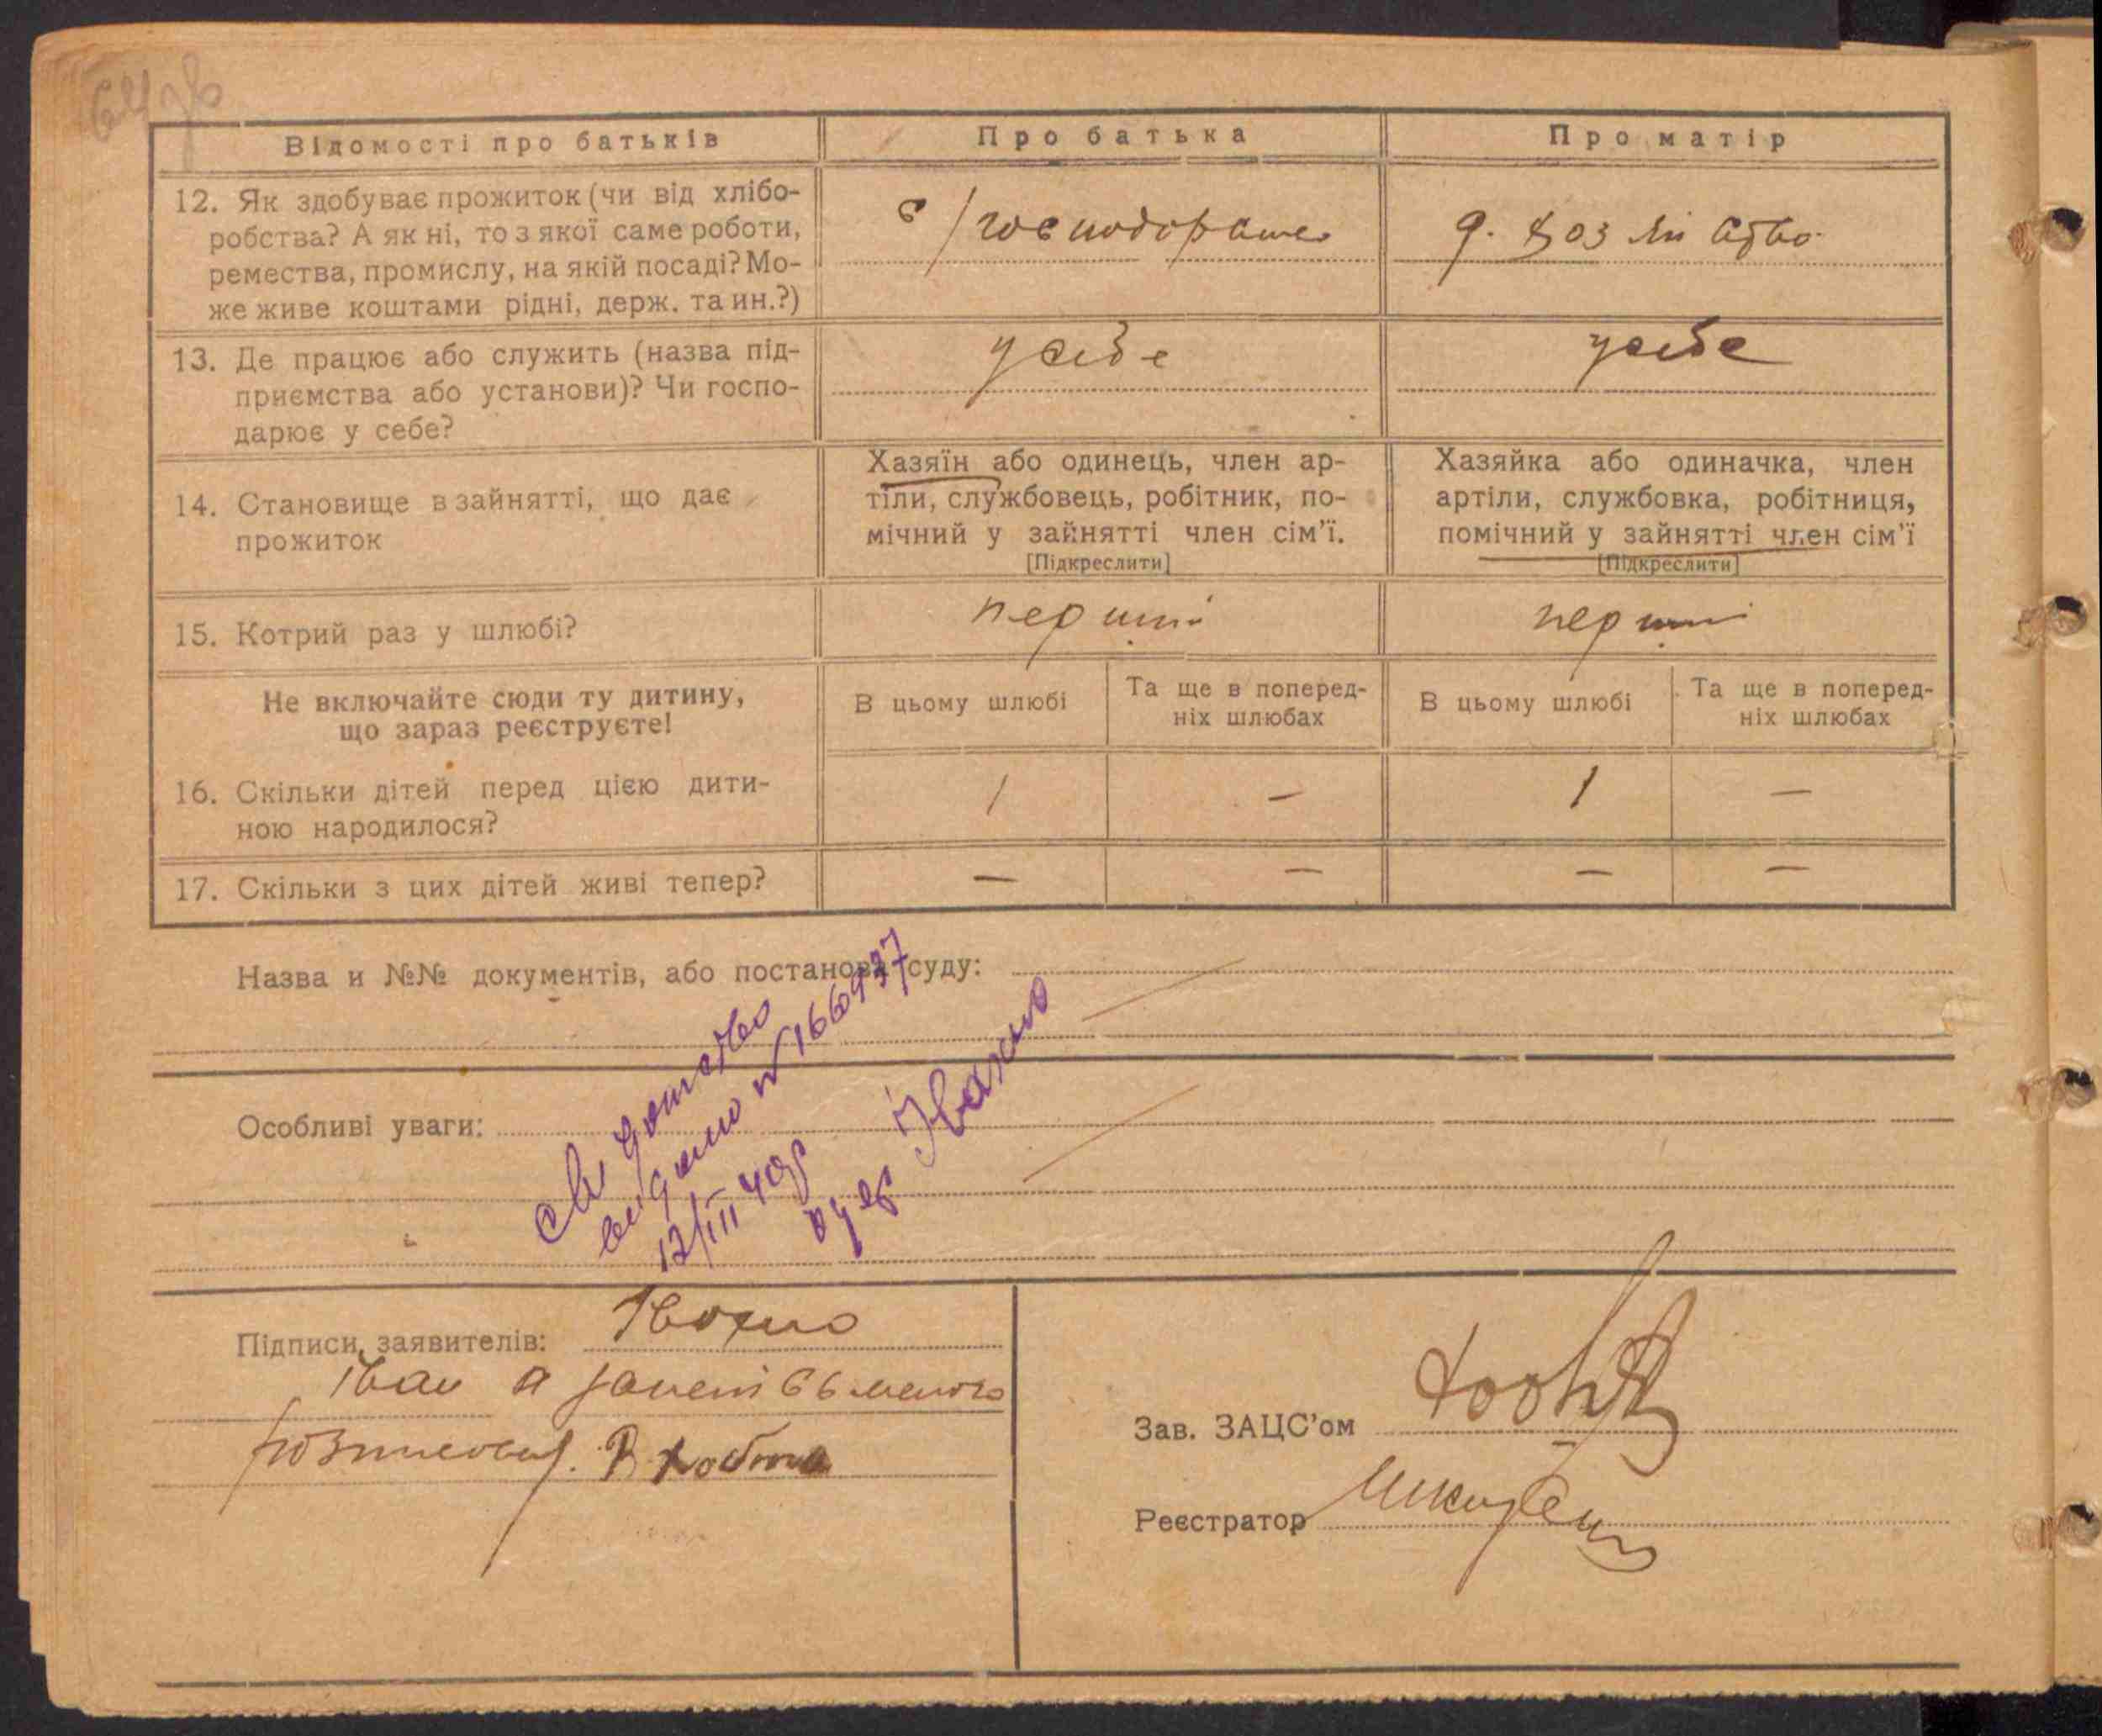 Відомості про батьків
Про батька
Про матір
12. Як здобуває прожиток (чи від хлібо-
робства? А як ні, то з якої саме роботи,
ремества, промислу, на якій посаді? Мо-
же живе коштами рідні, держ. та ин.?)
с/господораше
д. Хозяйство
13. Де працює або служить (назва під-
приємства або установи)? Чи госпо-
дарює у себе?
у себе
у себе
14. Становище в зайнятті, що дає
прожиток
Хазяїн або одинець, член ар-
тіли, службовець, робітник, по-
мічний у зайнятті член сім'ї.
[Підкреслити]
Хазяйка або одиначка, член
артіли, службовка, робітниця,
помічний у зайнятті член сім'ї
[Підкреслити]
15. Котрий раз у шлюбі?
перший
перший
Не включайте сюди ту дитину,
що зараз реєструєте!
В цьому шлюбі
Та ще в поперед-
ніх шлюбах
В цьому шлюбі
Та ще в поперед-
ніх шлюбах
16. Скільки дітей перед цією дити-
ною народилося?
1 — 1 —
17. Скільки з цих дітей живі тепер?
— — — —
Назва и №№ документів, або постанова суду:
Особливі уваги:
видано № 166937
12/III 40р
Івахно
Підписи заявителів: Івахно
Іван а
Зав. ЗАЦС'ом
Реєстратор